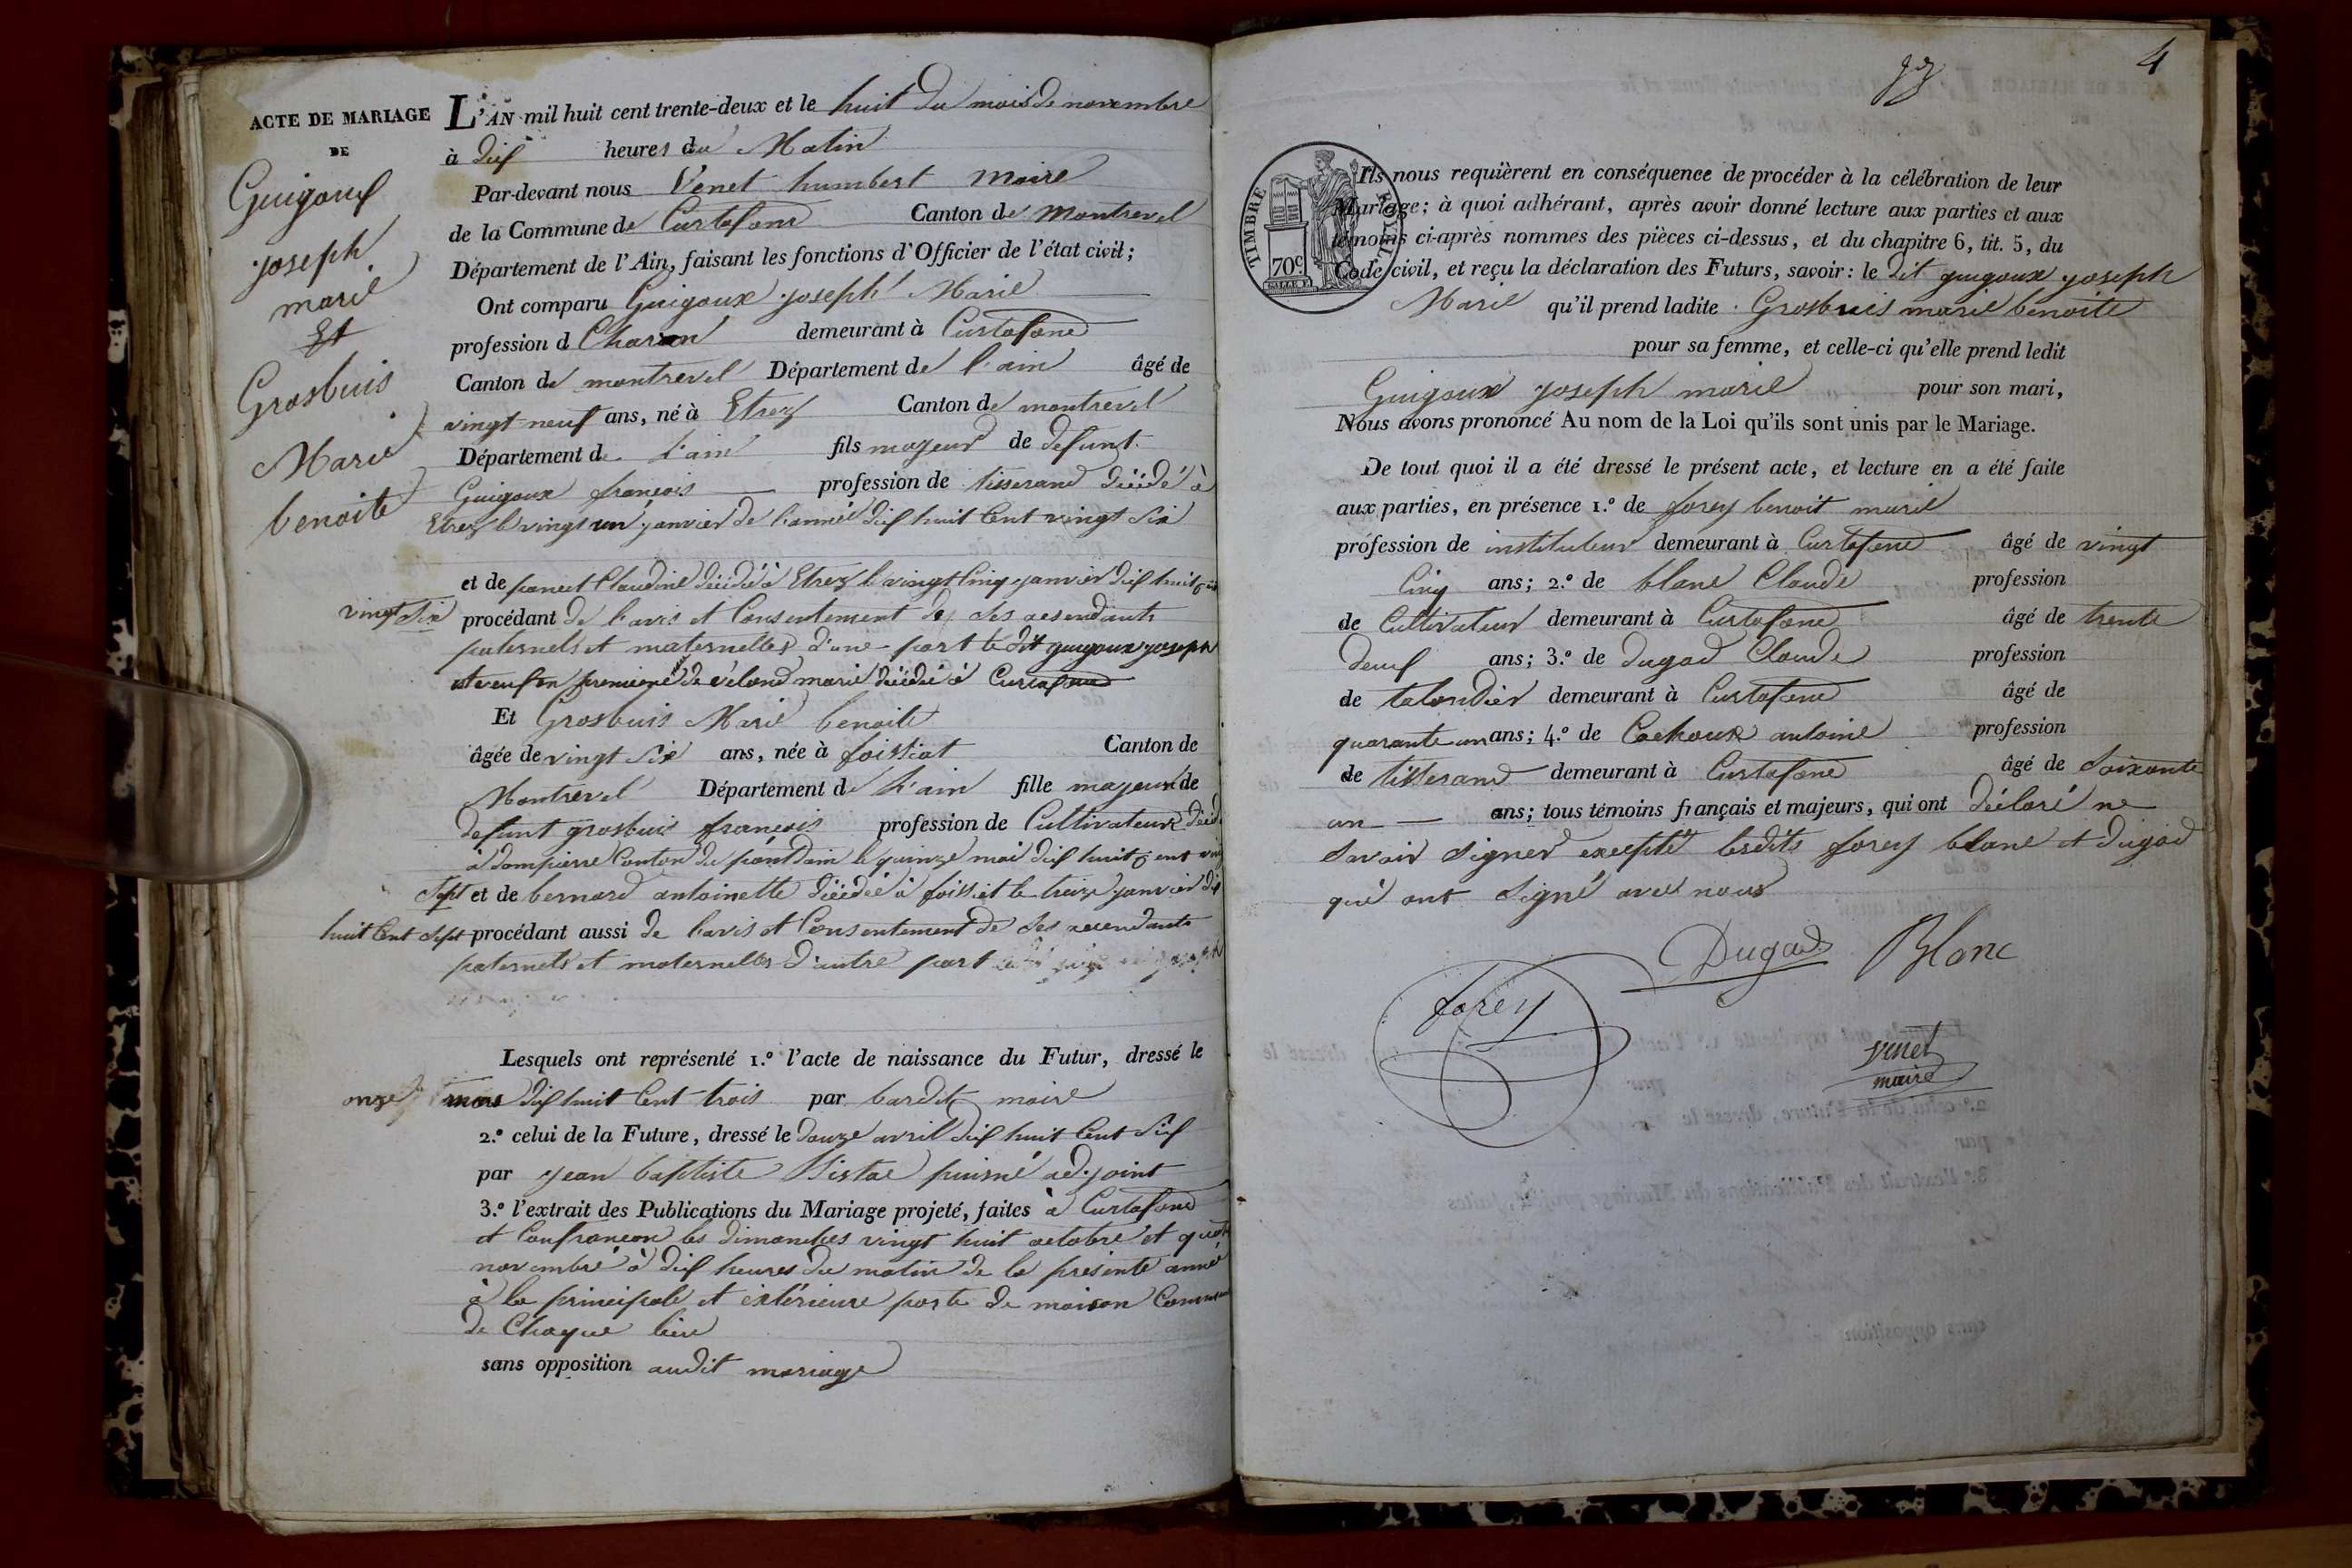 ACTE DE MARIAGE
DE
Guigoux
joseph
marie
Et
Grosbuis
Marie
benoite
L'AN mil huit cent trente-deux et le huit du mois de novembre
à dix heures du Matin
Par-devant nous Venet humbert Maire
de la Commune de Curtafond Canton de Montrevel
Département de l'Ain, faisant les fonctions d'Officier de l'état civil;
Ont comparu Guigoux joseph Marie
profession d Charon demeurant à Curtafond
Canton de montrevel Département de l'ain âgé de
vingt neuf ans, né à Etrez Canton de montrevel
Département de l'ain fils majeur de defunt
Guigoux francois profession de tisserand décédé à
Etrez le vingt un janvier de l'année dix huit Cent vingt Six
et de Claudine décédé à Etrez le vingt Cinq janvier dix huit cent
vingt Six procédant de l'avis et Consentement de ses asendants
paternels et maternelles d'une part le dit guigoux joseph
et veuf en premiere de marie décédé à Curtafond
Et Grosbuis Marie benoite
âgée de vingt Six ans, née à foissiat Canton de
Montrevel Département de l'ain fille majeur de
defunt grosbuis francois profession de Cultivateur décédé
à dompierre Canton de pontdain le quinze mai dix huit cent vingt
Sept et de bernard antoinette décédé à foissiat le treize janvier dix
huit Cent Sept procédant aussi de l'avis et Consentement de Ses acendants
paternels et maternelles d'autre part
Lesquels ont représenté 1.º l'acte de naissance du Futur, dressé le
onze mars dix huit Cent trois par bardet maire
2.º celui de la Future, dressé le douze avril dix huit Cent Six
par jean baptiste puisné adjoint
3.º l'extrait des Publications du Mariage projeté, faites à Curtafond
et Confrancon les dimanches vingt huit octobre et quatre
novembre à dix heures du matin de la présente année
à la principale et extérieure porte de maison Commune
de Chaque lieu
sans opposition audit mariage
4
TIMBRE ROYAL
70c.
Ils nous requièrent en conséquence de procéder à la célébration de leur
Mariage; à quoi adhérant, après avoir donné lecture aux parties et aux
témoins ci-après nommés des pièces ci-dessus, et du chapitre 6, tit. 5, du
Code civil, et reçu la déclaration des Futurs, savoir: le dit guigoux joseph
Marie qu'il prend ladite Grosbuis marie benoite
pour sa femme, et celle-ci qu'elle prend ledit
Guigoux joseph marie pour son mari,
Nous avons prononcé Au nom de la Loi qu'ils sont unis par le Mariage.
De tout quoi il a été dressé le présent acte, et lecture en a été faite
aux parties, en présence 1.º de forey benoit marie
profession de instituteur demeurant à Curtafond âgé de vingt
Cinq ans; 2.º de blanc Claude profession
de Cultivateur demeurant à Curtafond âgé de trente
deux ans; 3.º de dugad Claude profession
de taloudier demeurant à Curtafond âgé de
quarante un ans; 4.º de Cochoux antoine profession
de tisserand demeurant à Curtafond âgé de Soixante
un ans; tous témoins français et majeurs, qui ont déclaré ne
Savoir Signer excepté lesdits forey blanc et dugad
qui ont Signé avec nous
Dugad Blanc
forey
venet
maire